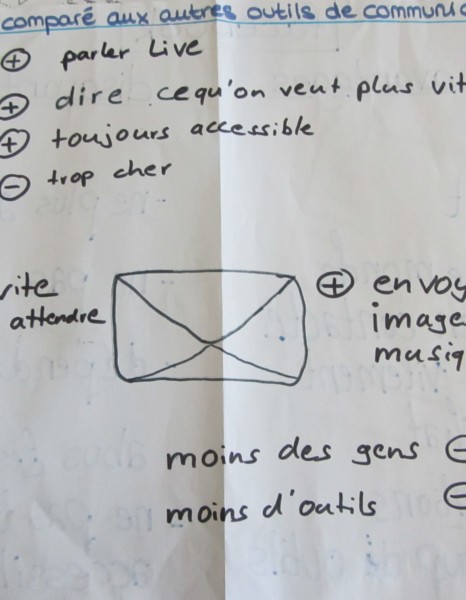 comparé aux autres outils de communic
⊕ parler Live
⊕ dire cequ'on veut plus vit
⊕ toujours accessible
⊖ trop cher
vite
attendre
⊕ envoy
image
musiq
moins des gens ⊖
moins d'outils ⊖